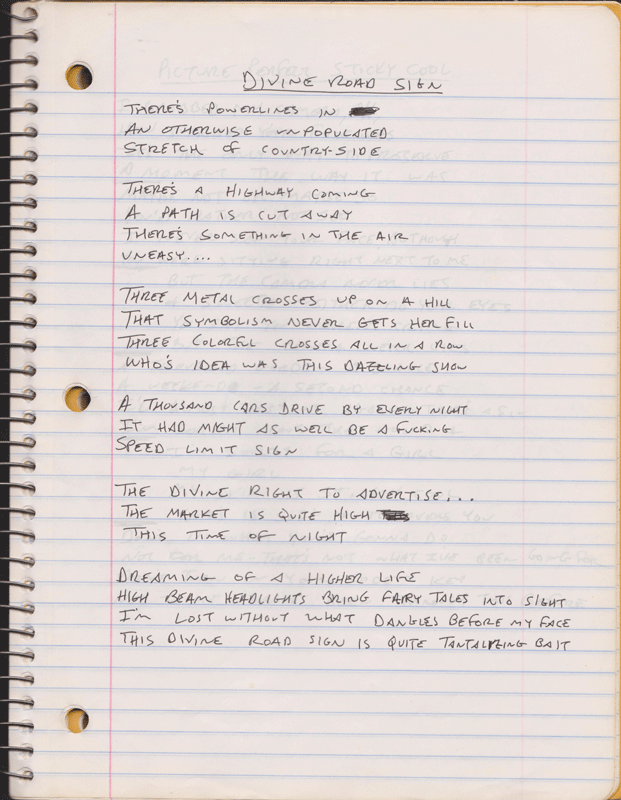 DIVINE ROAD SIGN
THERE'S POWERLINES IN
AN OTHERWISE UNPOPULATED
STRETCH OF COUNTRY-SIDE
THERE'S A HIGHWAY COMING
A PATH IS CUT AWAY
THERE'S SOMETHING IN THE AIR
UNEASY....
THREE METAL CROSSES UP ON A HILL
THAT SYMBOLISM NEVER GETS HER FILL
THREE COLORFUL CROSSES ALL IN A ROW
WHO'S IDEA WAS THIS DAZZLING SHOW
A THOUSAND CARS DRIVE BY EVERY NIGHT
IT HAD MIGHT AS WELL BE A FUCKING
SPEED LIMIT SIGN
THE DIVINE RIGHT TO ADVERTISE...
THE MARKET IS QUITE HIGH
THIS TIME OF NIGHT
DREAMING OF A HIGHER LIFE
HIGH BEAM HEADLIGHTS BRING FAIRY TALES INTO SIGHT
I'M LOST WITHOUT WHAT DANGLES BEFORE MY FACE
THIS DIVINE ROAD SIGN IS QUITE TANTALIZING BAIT